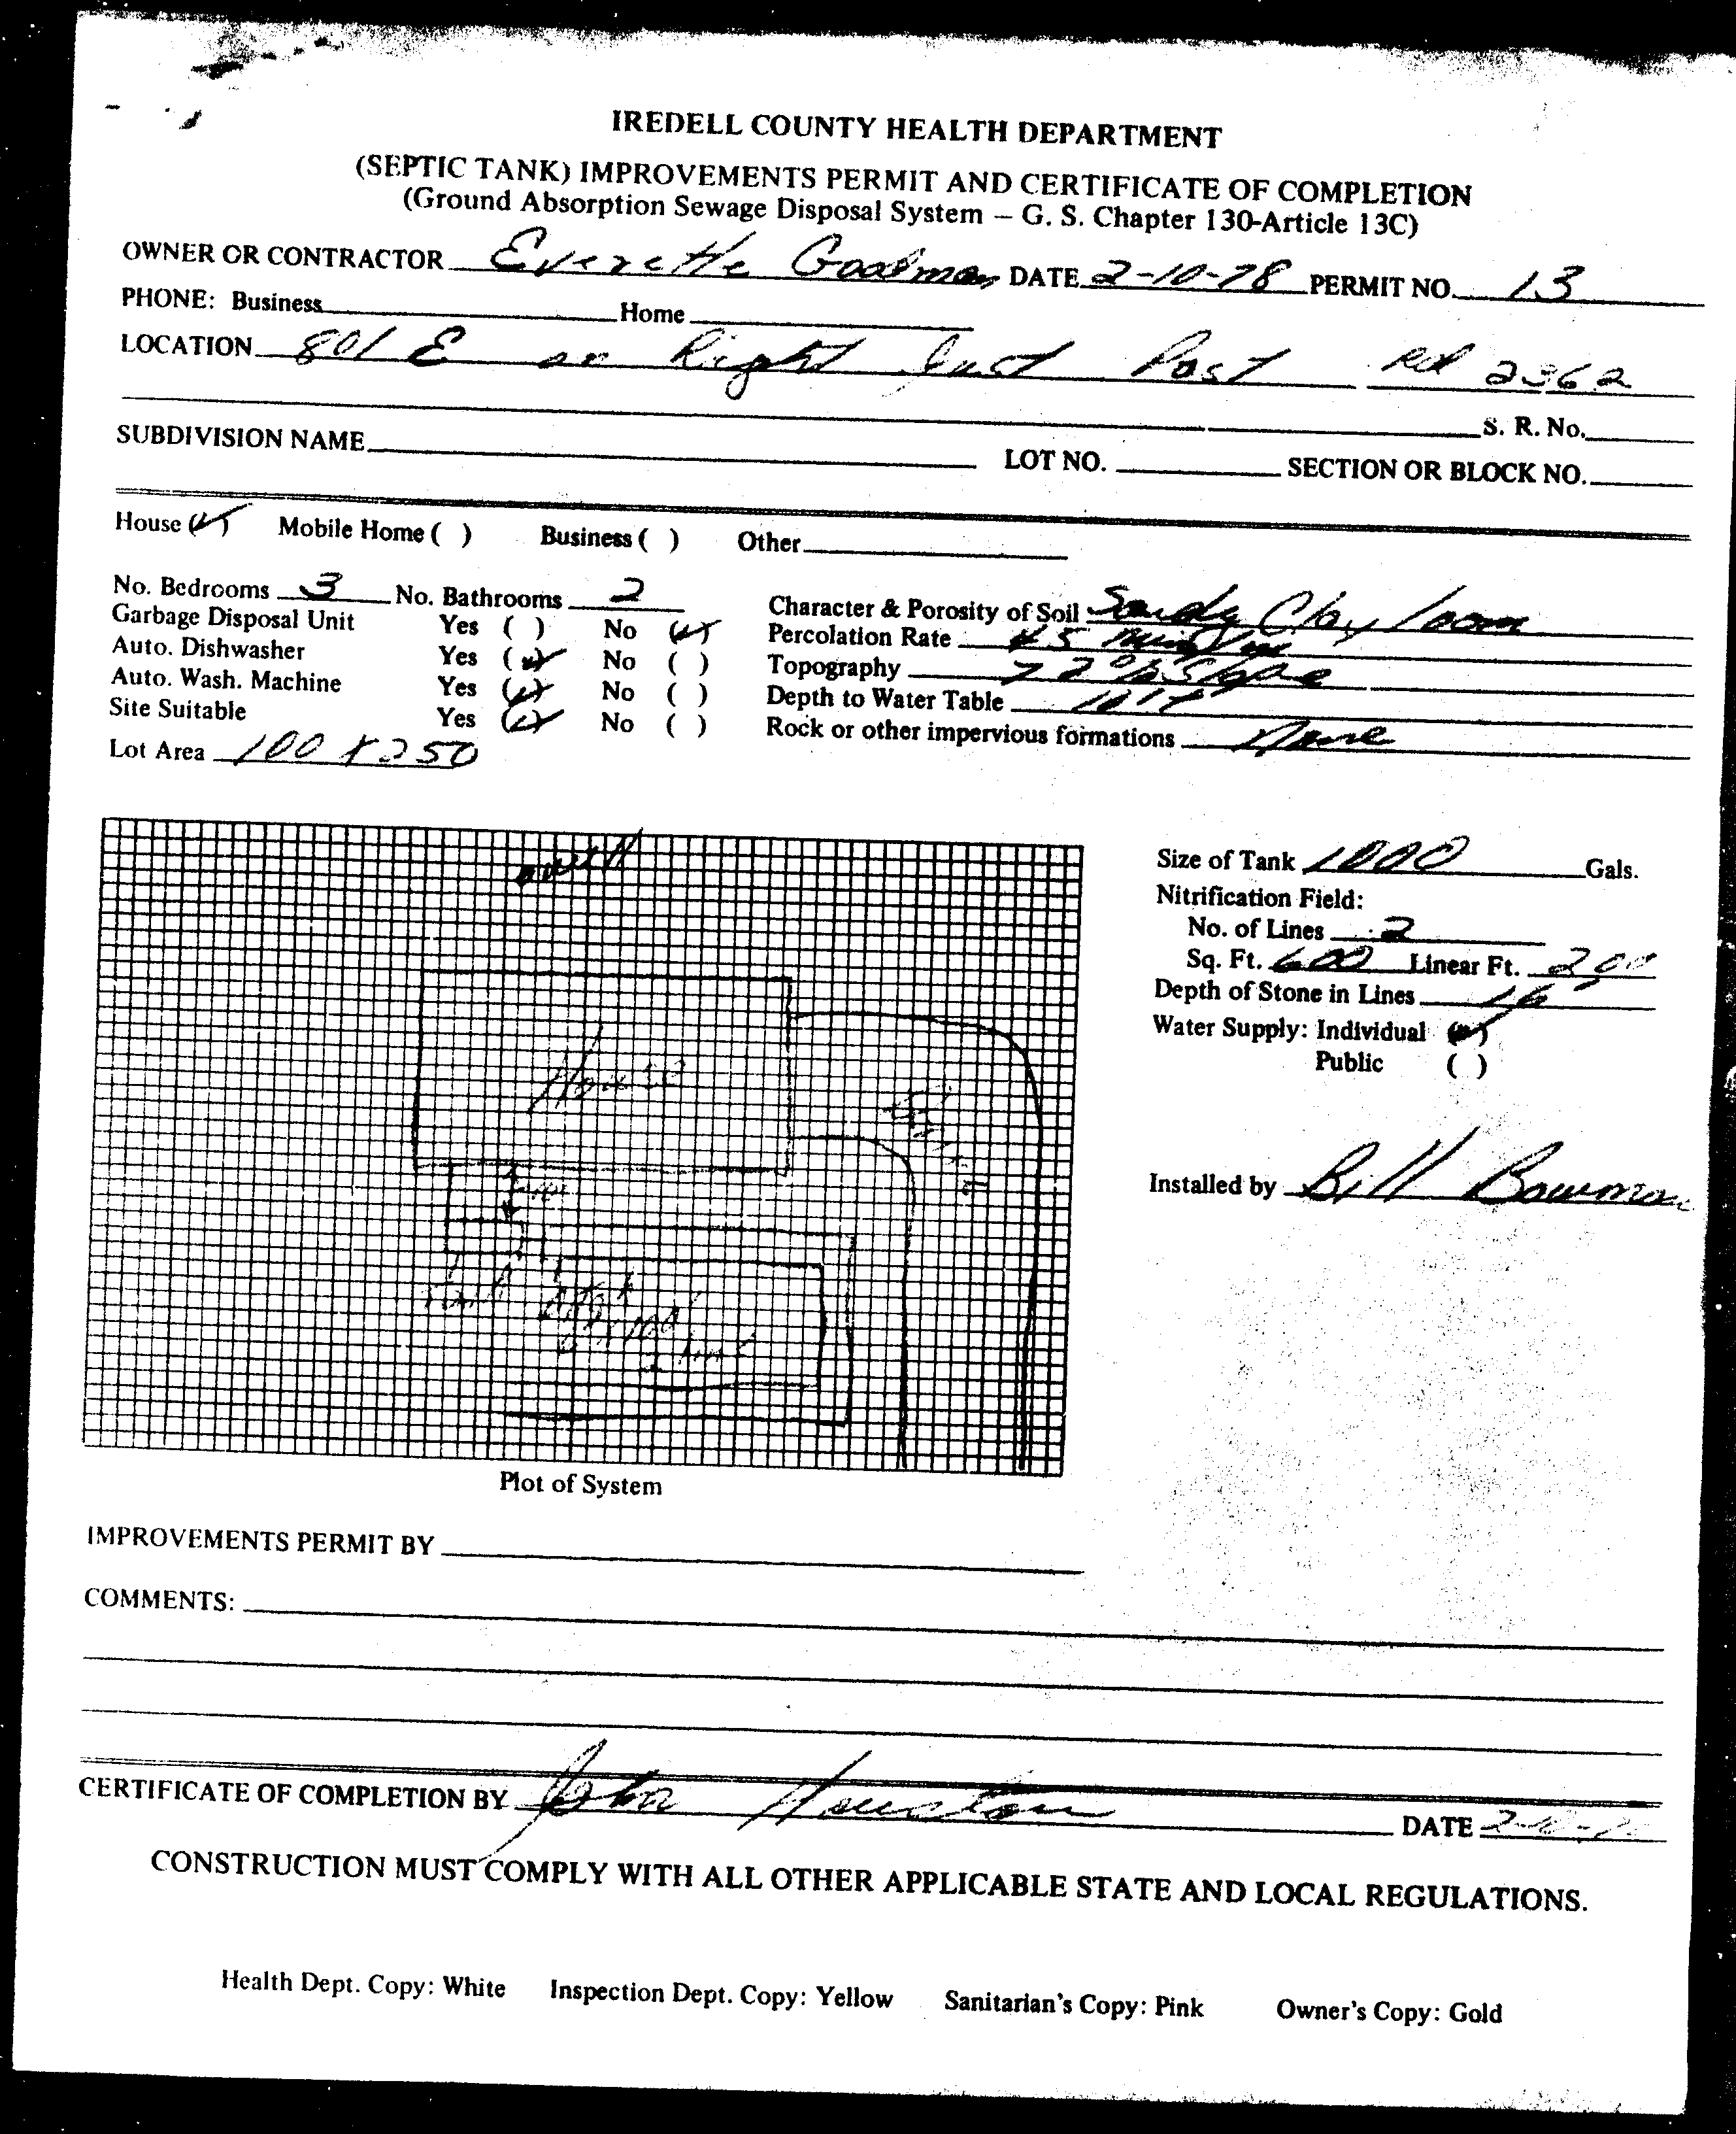 IREDELL COUNTY HEALTH DEPARTMENT
(SEPTIC TANK) IMPROVEMENTS PERMIT AND CERTIFICATE OF COMPLETION
(Ground Absorption Sewage Disposal System — G. S. Chapter 130-Article 13C)
OWNER OR CONTRACTOR Everette Goodman DATE 2-10-78 PERMIT NO. 13
PHONE: Business Home
LOCATION 801 E on Right Just Past Rd 2362
S. R. No.
SUBDIVISION NAME LOT NO. SECTION OR BLOCK NO.
House (✓) Mobile Home ( ) Business ( ) Other
No. Bedrooms 3 No. Bathrooms 2 Character & Porosity of Soil Sandy Clay loam
Garbage Disposal Unit Yes ( ) No (✓) Percolation Rate 45
Auto. Dishwasher Yes (✓) No ( ) Topography 2% Slope
Auto. Wash. Machine Yes (✓) No ( ) Depth to Water Table
Site Suitable Yes (✓) No ( ) Rock or other impervious formations None
Lot Area 100 X 250
well
Size of Tank 1000 Gals.
Nitrification Field:
No. of Lines 2
Sq. Ft. 600 Linear Ft. 200
Depth of Stone in Lines 16"
Water Supply: Individual (✓)
Public ( )
House
Installed by Bill Bowman
Tank
Plot of System
IMPROVEMENTS PERMIT BY
COMMENTS:
CERTIFICATE OF COMPLETION BY John Houston DATE 2-10-
CONSTRUCTION MUST COMPLY WITH ALL OTHER APPLICABLE STATE AND LOCAL REGULATIONS.
Health Dept. Copy: White Inspection Dept. Copy: Yellow Sanitarian's Copy: Pink Owner's Copy: Gold